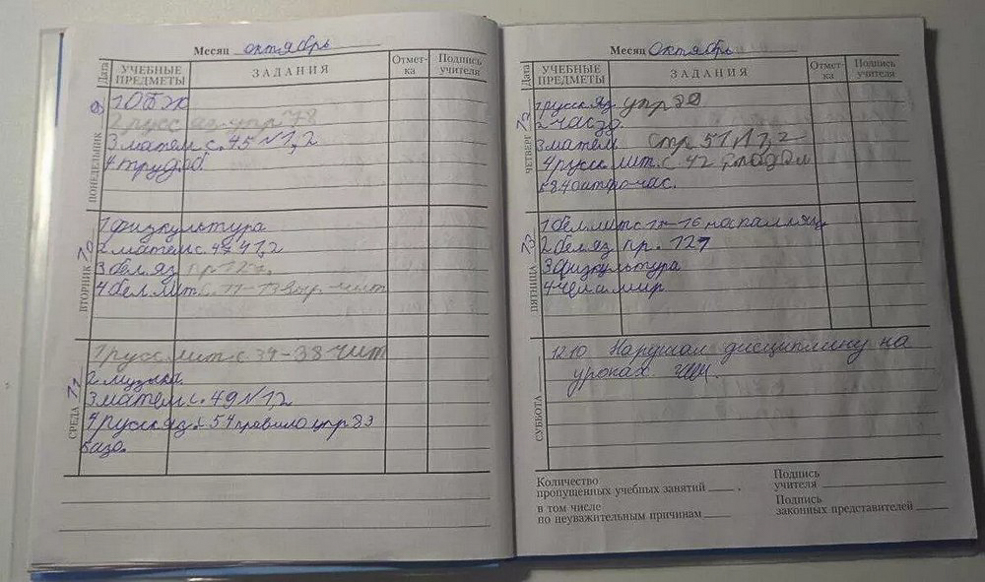 Месяц октябрь
Дата
УЧЕБНЫЕ ПРЕДМЕТЫ
ЗАДАНИЯ
Отмет-
ка
Подпись
учителя
ПОНЕДЕЛЬНИК 9
1 ОБЖ
2 русс яз упр 78
3 матем с. 45 №1,2
4 труд
ВТОРНИК 10
1 физкультура
2 матем с. 47
3 бел. яз пр 121.
4 бел. лит. с. 11-13 выр. чит
СРЕДА 11
1 русс лит с 34-38 чит
2 музыка
3 матем с. 49 №1,2
4 русск яз. с 54 правило упр 83
Месяц Октябрь
Дата
УЧЕБНЫЕ ПРЕДМЕТЫ
ЗАДАНИЯ
Отмет-
ка
Подпись
учителя
ЧЕТВЕРГ 12
1 русск яз упр
3 матем стр 51 №1,2
4 русск лит. с 42
час.
ПЯТНИЦА 13
1 бел лит с 15-16 на памяць
2 бел яз пр. 127
3 физкультура
4 чел и мир
СУББОТА
12.10 Нарушал дисциплину на
уроках
Количество
пропущенных учебных занятий
в том числе
по неуважительным причинам
Подпись
учителя
Подпись
законных представителей